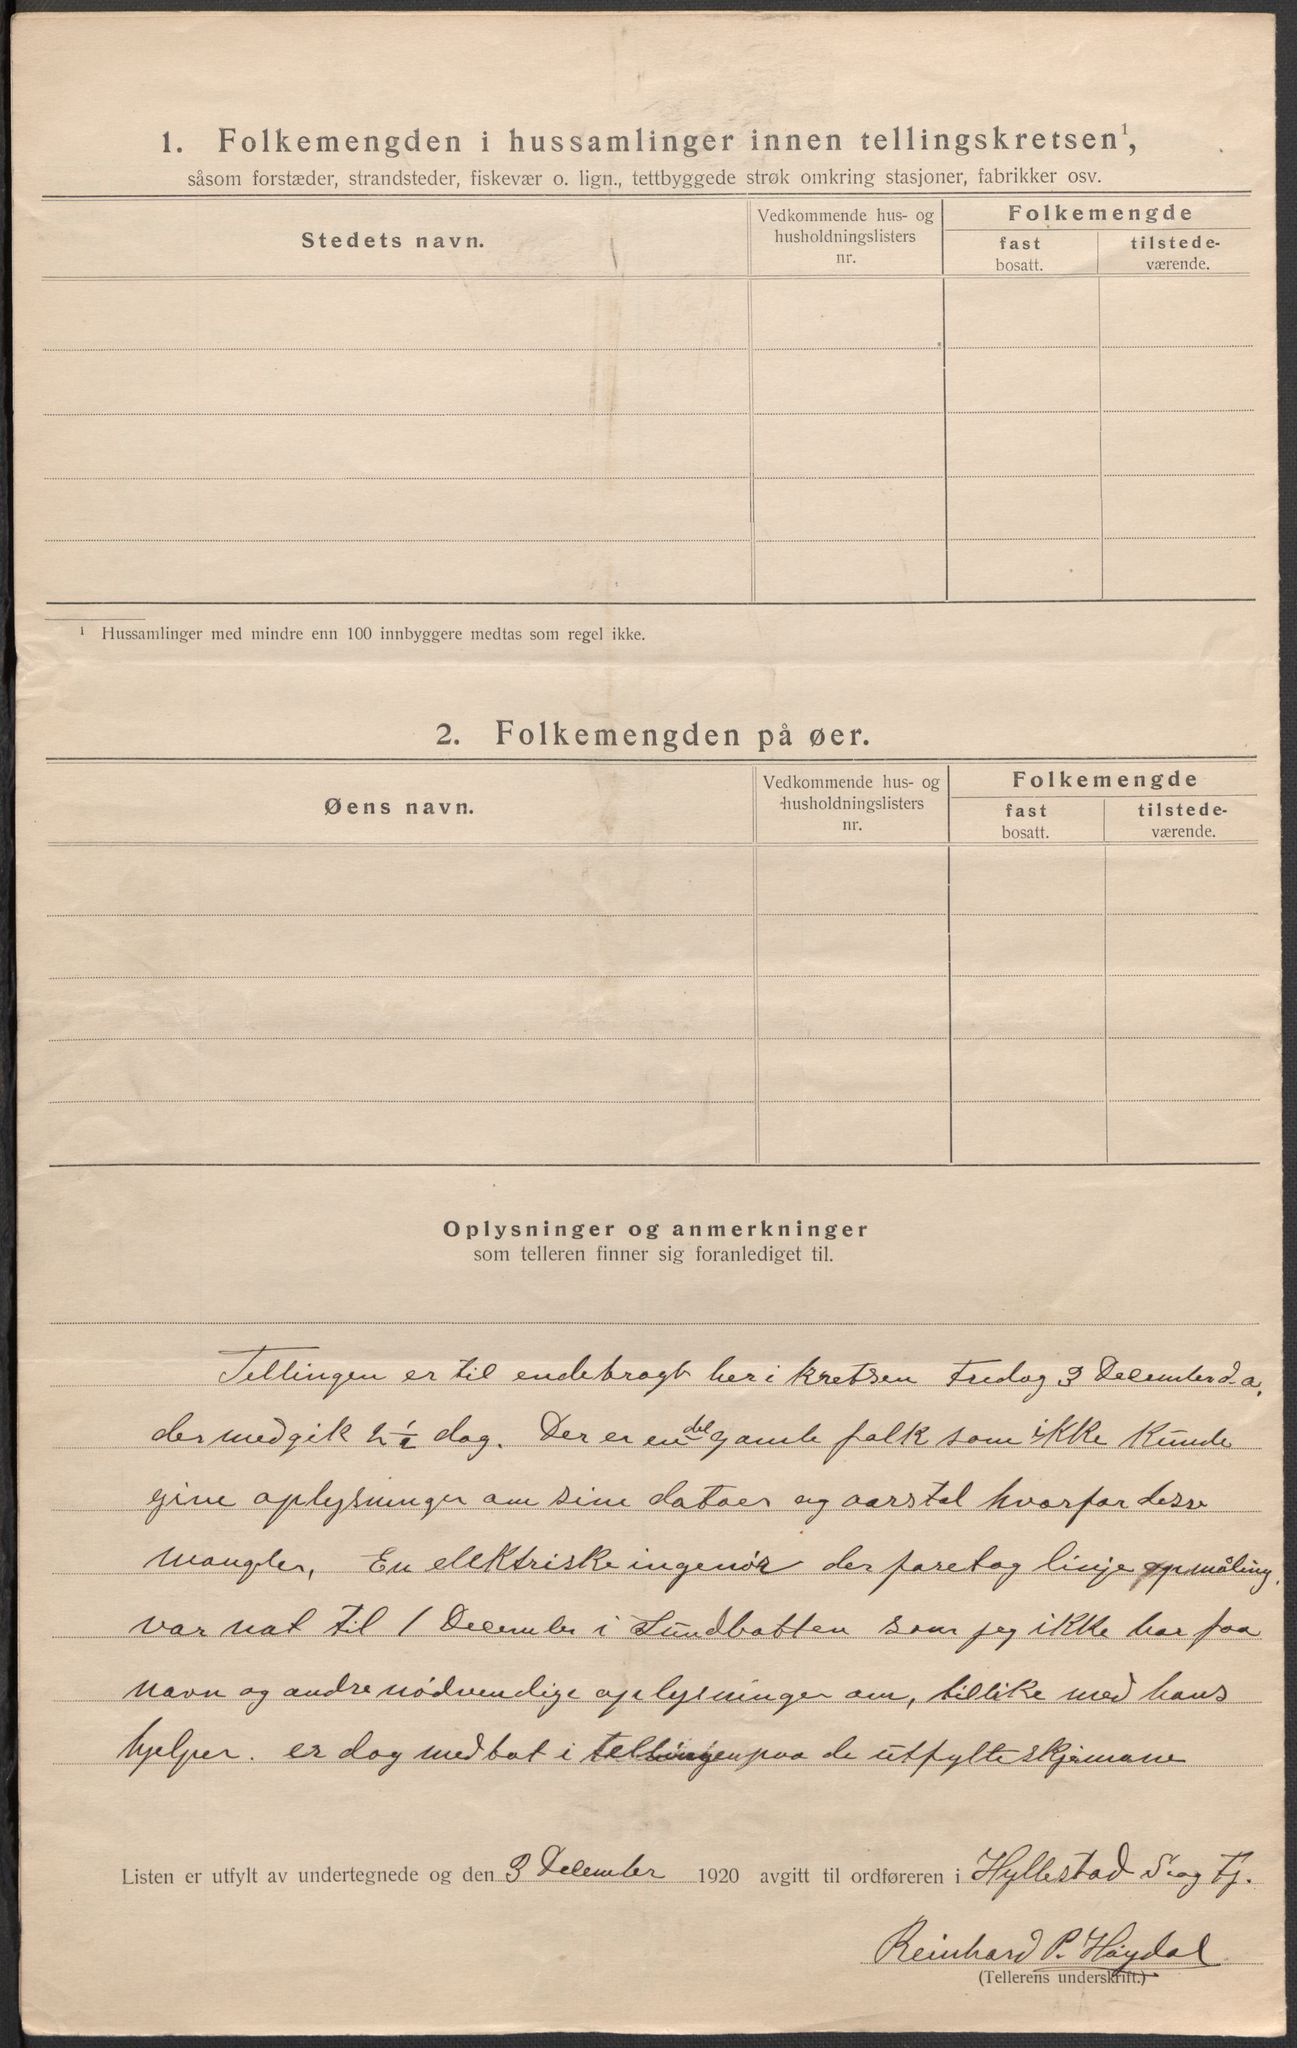 1. Folkemengden i hussamlinger innen tellingskretsen¹,
såsom forstæder, strandsteder, fiskevær o. lign., tettbyggede strøk omkring stasjoner, fabrikker osv.
Stedets navn.
Vedkommende hus- og
husholdningslisters
nr.
Folkemengde
fast
bosatt.
tilstede-
værende.
¹ Hussamlinger med mindre enn 100 innbyggere medtas som regel ikke.
2. Folkemengden på øer.
Øens navn.
Vedkommende hus- og
husholdningslisters
nr.
Folkemengde
fast
bosatt.
tilstede-
værende.
Oplysninger og anmerkninger
som telleren finner sig foranlediget til.
Tellingen er til endebragt her i kretsen Fredag 3 December d. a.
der medgik 2½ dag. Der er en del gamle folk som ikke kunde
give oplysninger om sine datoer og aarstal hvorfor disse
mangler. En elektriske ingeniör der foretog linje opmåling.
var nat til 1 December i Sundbotten som jeg ikke har faa
navn og andre nödvendige oplysninger om, tillike med hans
hjelper. er dog medtat i tellingen paa de utfylte skjemane
Listen er utfylt av undertegnede og den 3 December 1920 avgitt til ordføreren i Hyllestad S. og Fj.
Reinhard P. Höydal
(Tellerens underskrift.)